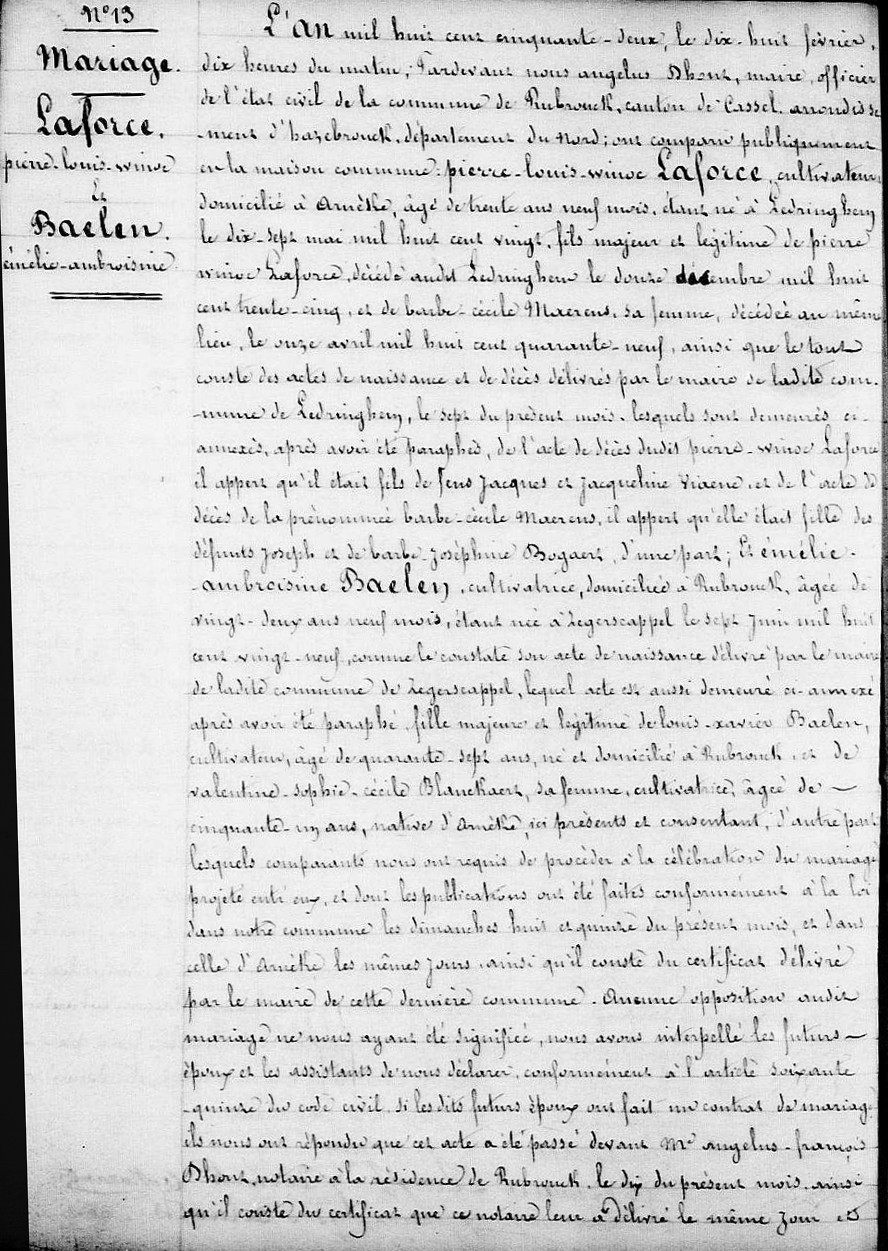 N° 13
Mariage.
Laforce.
pierre-louis-winoc
Et
Baelen.
émélie-ambroisine
L'an mil huit cent cinquante-deux, le dix-huit février,
dix heures du matin; Pardevant nous angelus Dhont, maire, officier
de l'état civil de la commune de Rubrouck, canton de Cassel, arrondisse
-ment d'hazebrouck, département du Nord; ont comparu publiquement
en la maison commune: pierre-louis-winoc Laforce, cultivateur,
domicilié à Arnèke, âgé de trente ans neuf mois, étant né à Ledringhem
le dix-sept mai mil huit cent vingt, fils majeur et légitime de pierre
winoc Laforce, décédé audit Ledringhem le douze décembre mil huit
cent trente-cinq, et de barbe-cécile Maerens, sa femme, décédée au même
lieu, le onze avril mil huit cent quarante-neuf, ainsi que le tout
conste des actes de naissance et de décès délivrés par le maire de ladite com.
-mune de Ledringhem, le sept du présent mois, lesquels sont demeurés ci-
annexés, après avoir été paraphés, de l'acte de décès dudit pierre-winoc Laforce
il appert qu'il était fils de feus Jacques et Jacqueline Viaene, et de l'acte de
décès de la prénommée barbe-cécile Maerens, il appert qu'elle était fille des
défunts Joseph et de barbe-Joséphine Bogaert, d'une part; Et émélie-
-ambroisine Baelen, cultivatrice, domiciliée à Rubrouck, âgée de
vingt-deux ans neuf mois, étant née à Zegerscappel le sept Juin mil huit
cent vingt-neuf, comme le constate son acte de naissance délivré par le maire
de ladite commune de Zegerscappel, lequel acte est aussi demeuré ci-annexé
après avoir été paraphé, fille majeure et légitime de louis-xavier Baelen,
cultivateur, âgé de quarante-sept ans, né et domicilié à Rubrouck, et de
valentine-sophie-cécile Blanckaert, sa femme, cultivatrice, âgée de —
cinquante-un ans, native d'Arnèke, ici présents et consentant, d'autre part
lesquels comparants nous ont requis de procéder à la célébration du mariage
projeté entr'eux, et dont les publications ont été faites conformément à la loi
dans notre commune les dimanches huit et quinze du présent mois, et dans
celle d'Arnèke les mêmes jours, ainsi qu'il conste du certificat délivré
par le maire de cette dernière commune. Aucune opposition audit
mariage ne nous ayant été signifiée, nous avons interpellé les futurs —
époux et les assistants de nous déclarer, conformément à l'article soixante
-quinze du code civil, si lesdits futurs époux ont fait un contrat de mariage
ils nous ont répondu que cet acte a été passé devant Mr angelus-françois
Dhont, notaire à la résidence de Rubrouck, le dix du présent mois, ainsi
qu'il conste du certificat que ce notaire leur a délivré le même jour et